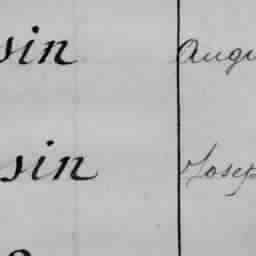 sin Augu
sin Josep